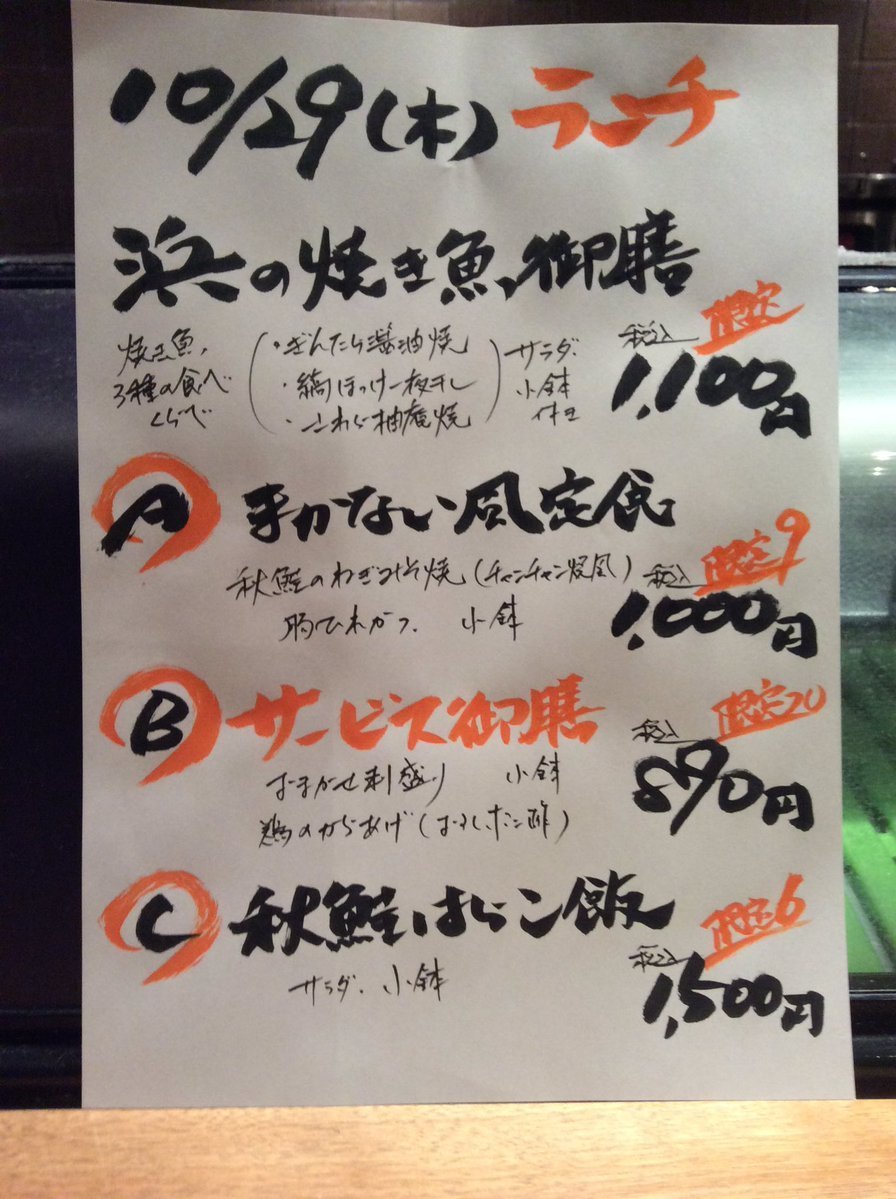 10/29(木) ランチ
浜の焼き魚御膳
焼き魚、
3種の食べ
くらべ
・ぎんたら醤油焼
・縞ほっけ一夜干し
・さわら柚庵焼
サラダ、
小鉢
付き
限定
税込
1,100円
A まかない風定食
限定9
秋鮭のねぎみそ焼(チャンチャン焼風)
税込
1,000円
小鉢
B サービス御膳
限定20
税込
おまかせ刺盛り 小鉢
890円
鶏のからあげ(おろしポン酢)
C 秋鮭はらこ飯
限定6
税込
サラダ、小鉢
1,500円